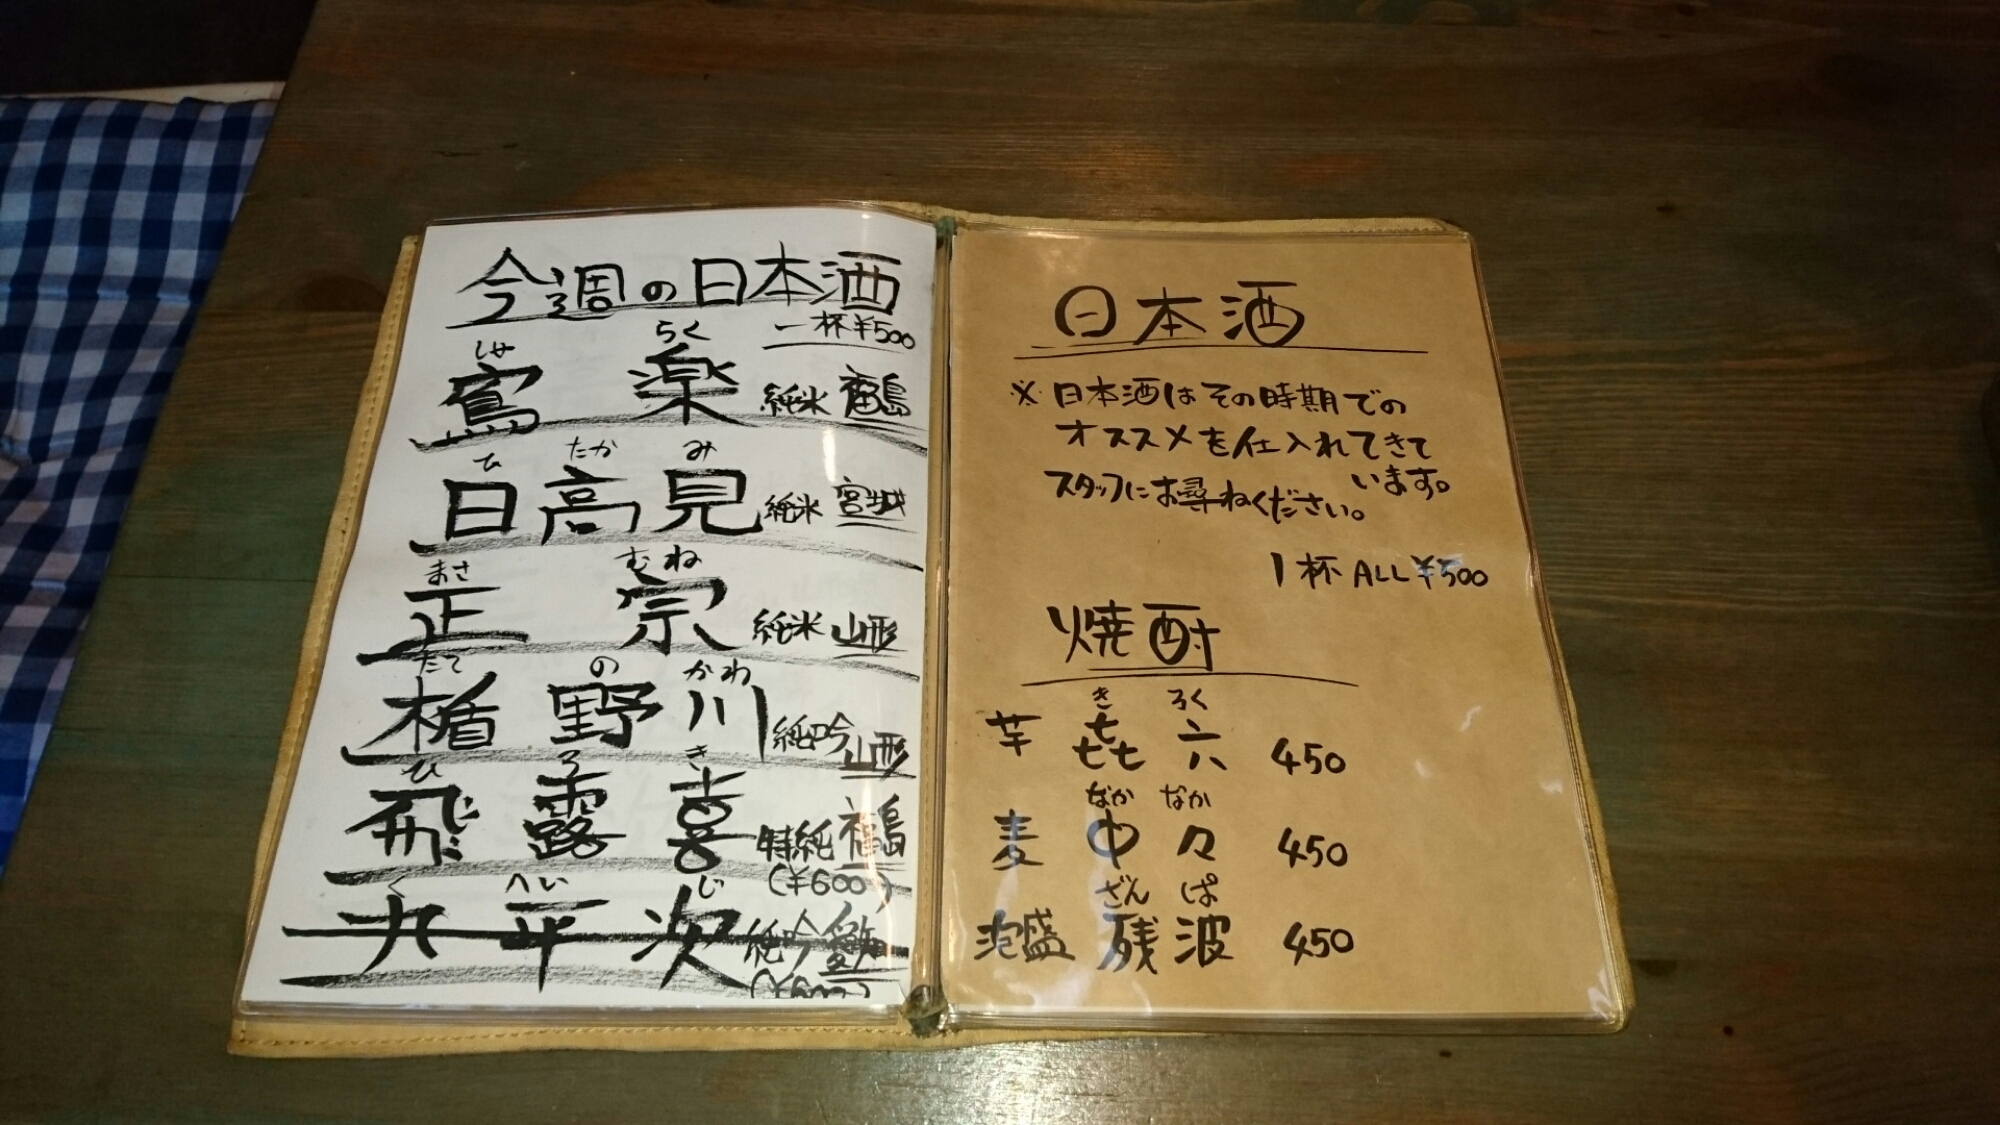 今週の日本酒
一杯¥500
しゃ らく
寫 楽 純米 福島
ひ たか み
日 高 見 純米 宮城
まさ むね
正 宗 純米 山形
たて の かわ
楯 野 川 純吟 山形
ひ ろ き
飛 露 喜 特純 福島
(¥600)
く へい じ
九 平 次 純吟 愛知
(¥600)
日本酒
※日本酒はその時期での
オススメを仕入れてきて
います。
スタッフにお尋ねください。
1杯 ALL ¥500
焼酎
き ろく
芋 㐂 六 450
なか なか
麦 中 々 450
ざん ぱ
泡盛 残 波 450